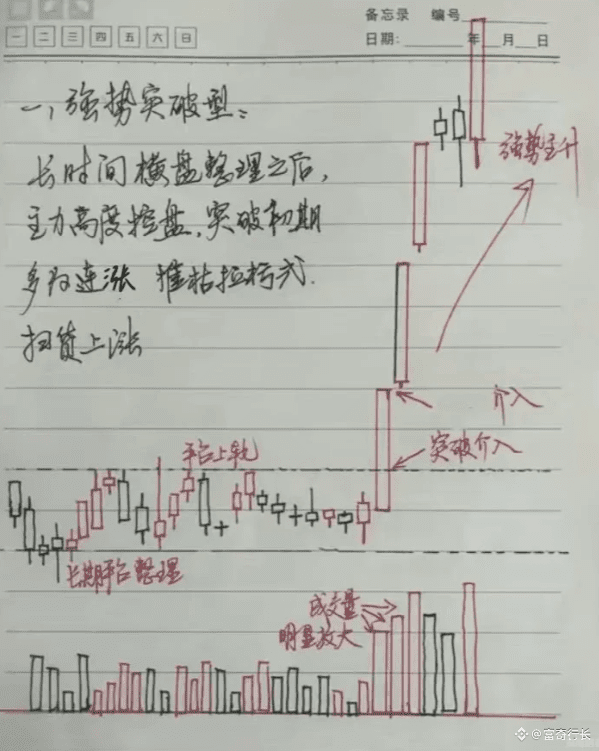 备忘录 编号
一 二 三 四 五 六 日
日期: 年 月 日
一、强势突破型:
长时间横盘整理之后,
主力高度控盘,突破初期
多为连涨 推枯拉朽式.
扫货上涨
强势主升
介入
突破介入
平台上轨
长期平台整理
成交量
明显放大
@富奇行长